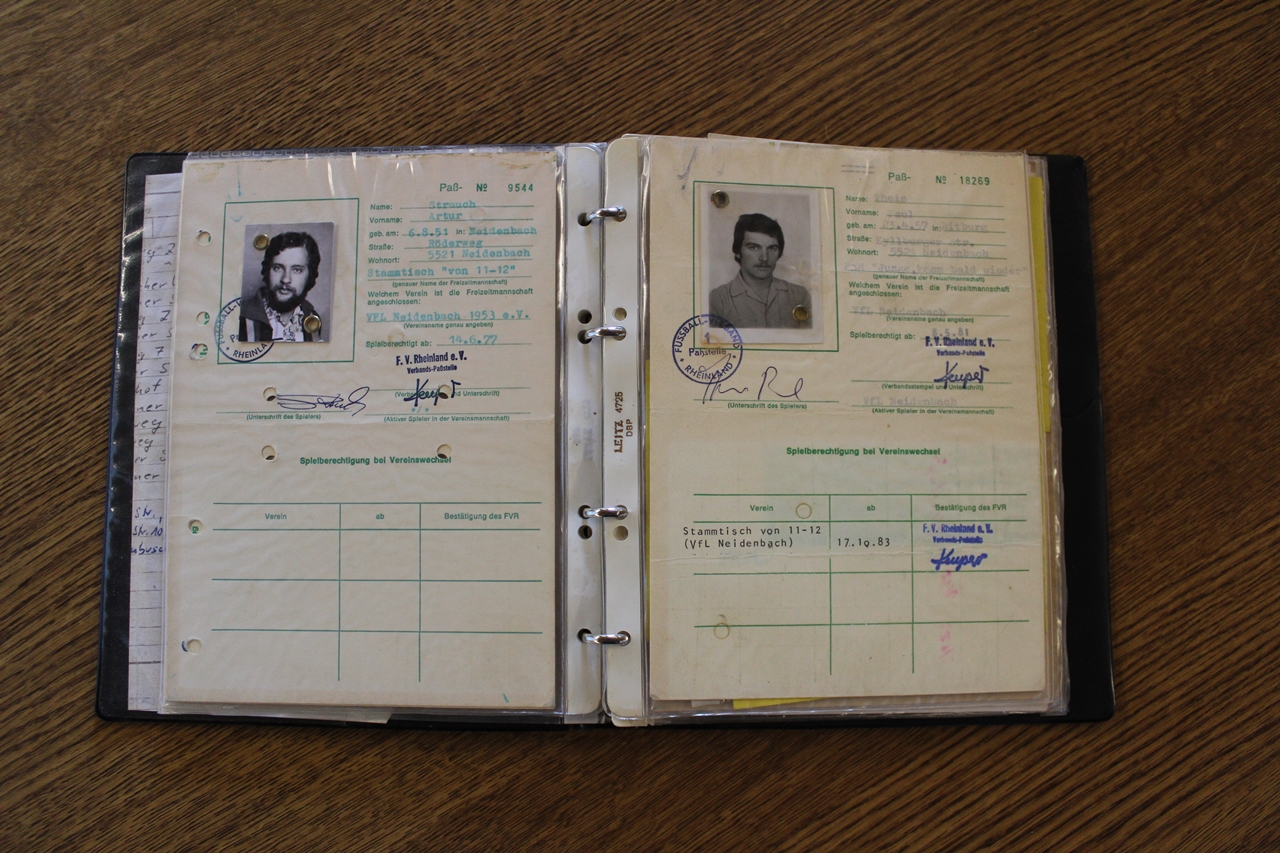 Paß- № 9544
Name: Strauch
Vorname: Artur
geb. am: 6.8.51 in: Neidenbach
Straße: Röderweg
Wohnort: 5521 Neidenbach
Stammtisch "von 11-12"
(genauer Name der Freizeitmannschaft)
Welchem Verein ist die Freizeitmannschaft
angeschlossen:
VfL Neidenbach 1953 e.V.
(Vereinsname genau angeben)
Spielberechtigt ab: 14.6.77
F. V. Rheinland e. V.
Verbands-Paßstelle
RHEINLA
(Unterschrift des Spielers)
(Aktiver Spieler in der Vereinsmannschaft)
Spielberechtigung bei Vereinswechsel
Verein ab Bestätigung des FVR
LEITZ 4725
DBP
Paß- № 18269
Name: Theis
Vorname:
geb. am: 23.4.57 in: Bitburg
Straße: Str.
Wohnort: 5521 Neidenbach
"Junge komm bald wieder"
(genauer Name der Freizeitmannschaft)
Welchem Verein ist die Freizeitmannschaft
angeschlossen:
VfL Neidenbach
(Vereinsname genau angeben)
Spielberechtigt ab: 6.5.81
F. V. Rheinland e. V.
Verbands-Paßstelle
FUSSBALL-VERBAND
1
Paßstelle
RHEINLAND
(Verbandsstempel und Unterschrift)
VfL Neidenbach
(Unterschrift des Spielers)
(Aktiver Spieler in der Vereinsmannschaft)
Spielberechtigung bei Vereinswechsel
Verein ab Bestätigung des FVR
Stammtisch von 11-12
(VfL Neidenbach) 17.10.83
F. V. Rheinland e. V.
Verbands-Paßstelle